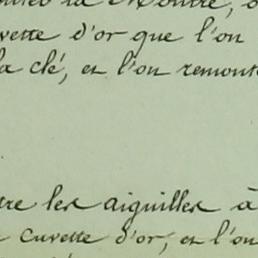 la Montre, o
vette d'or que l'on
la clé, et l'on remont
tre les aiguilles à
cuvette d'or, et l'on